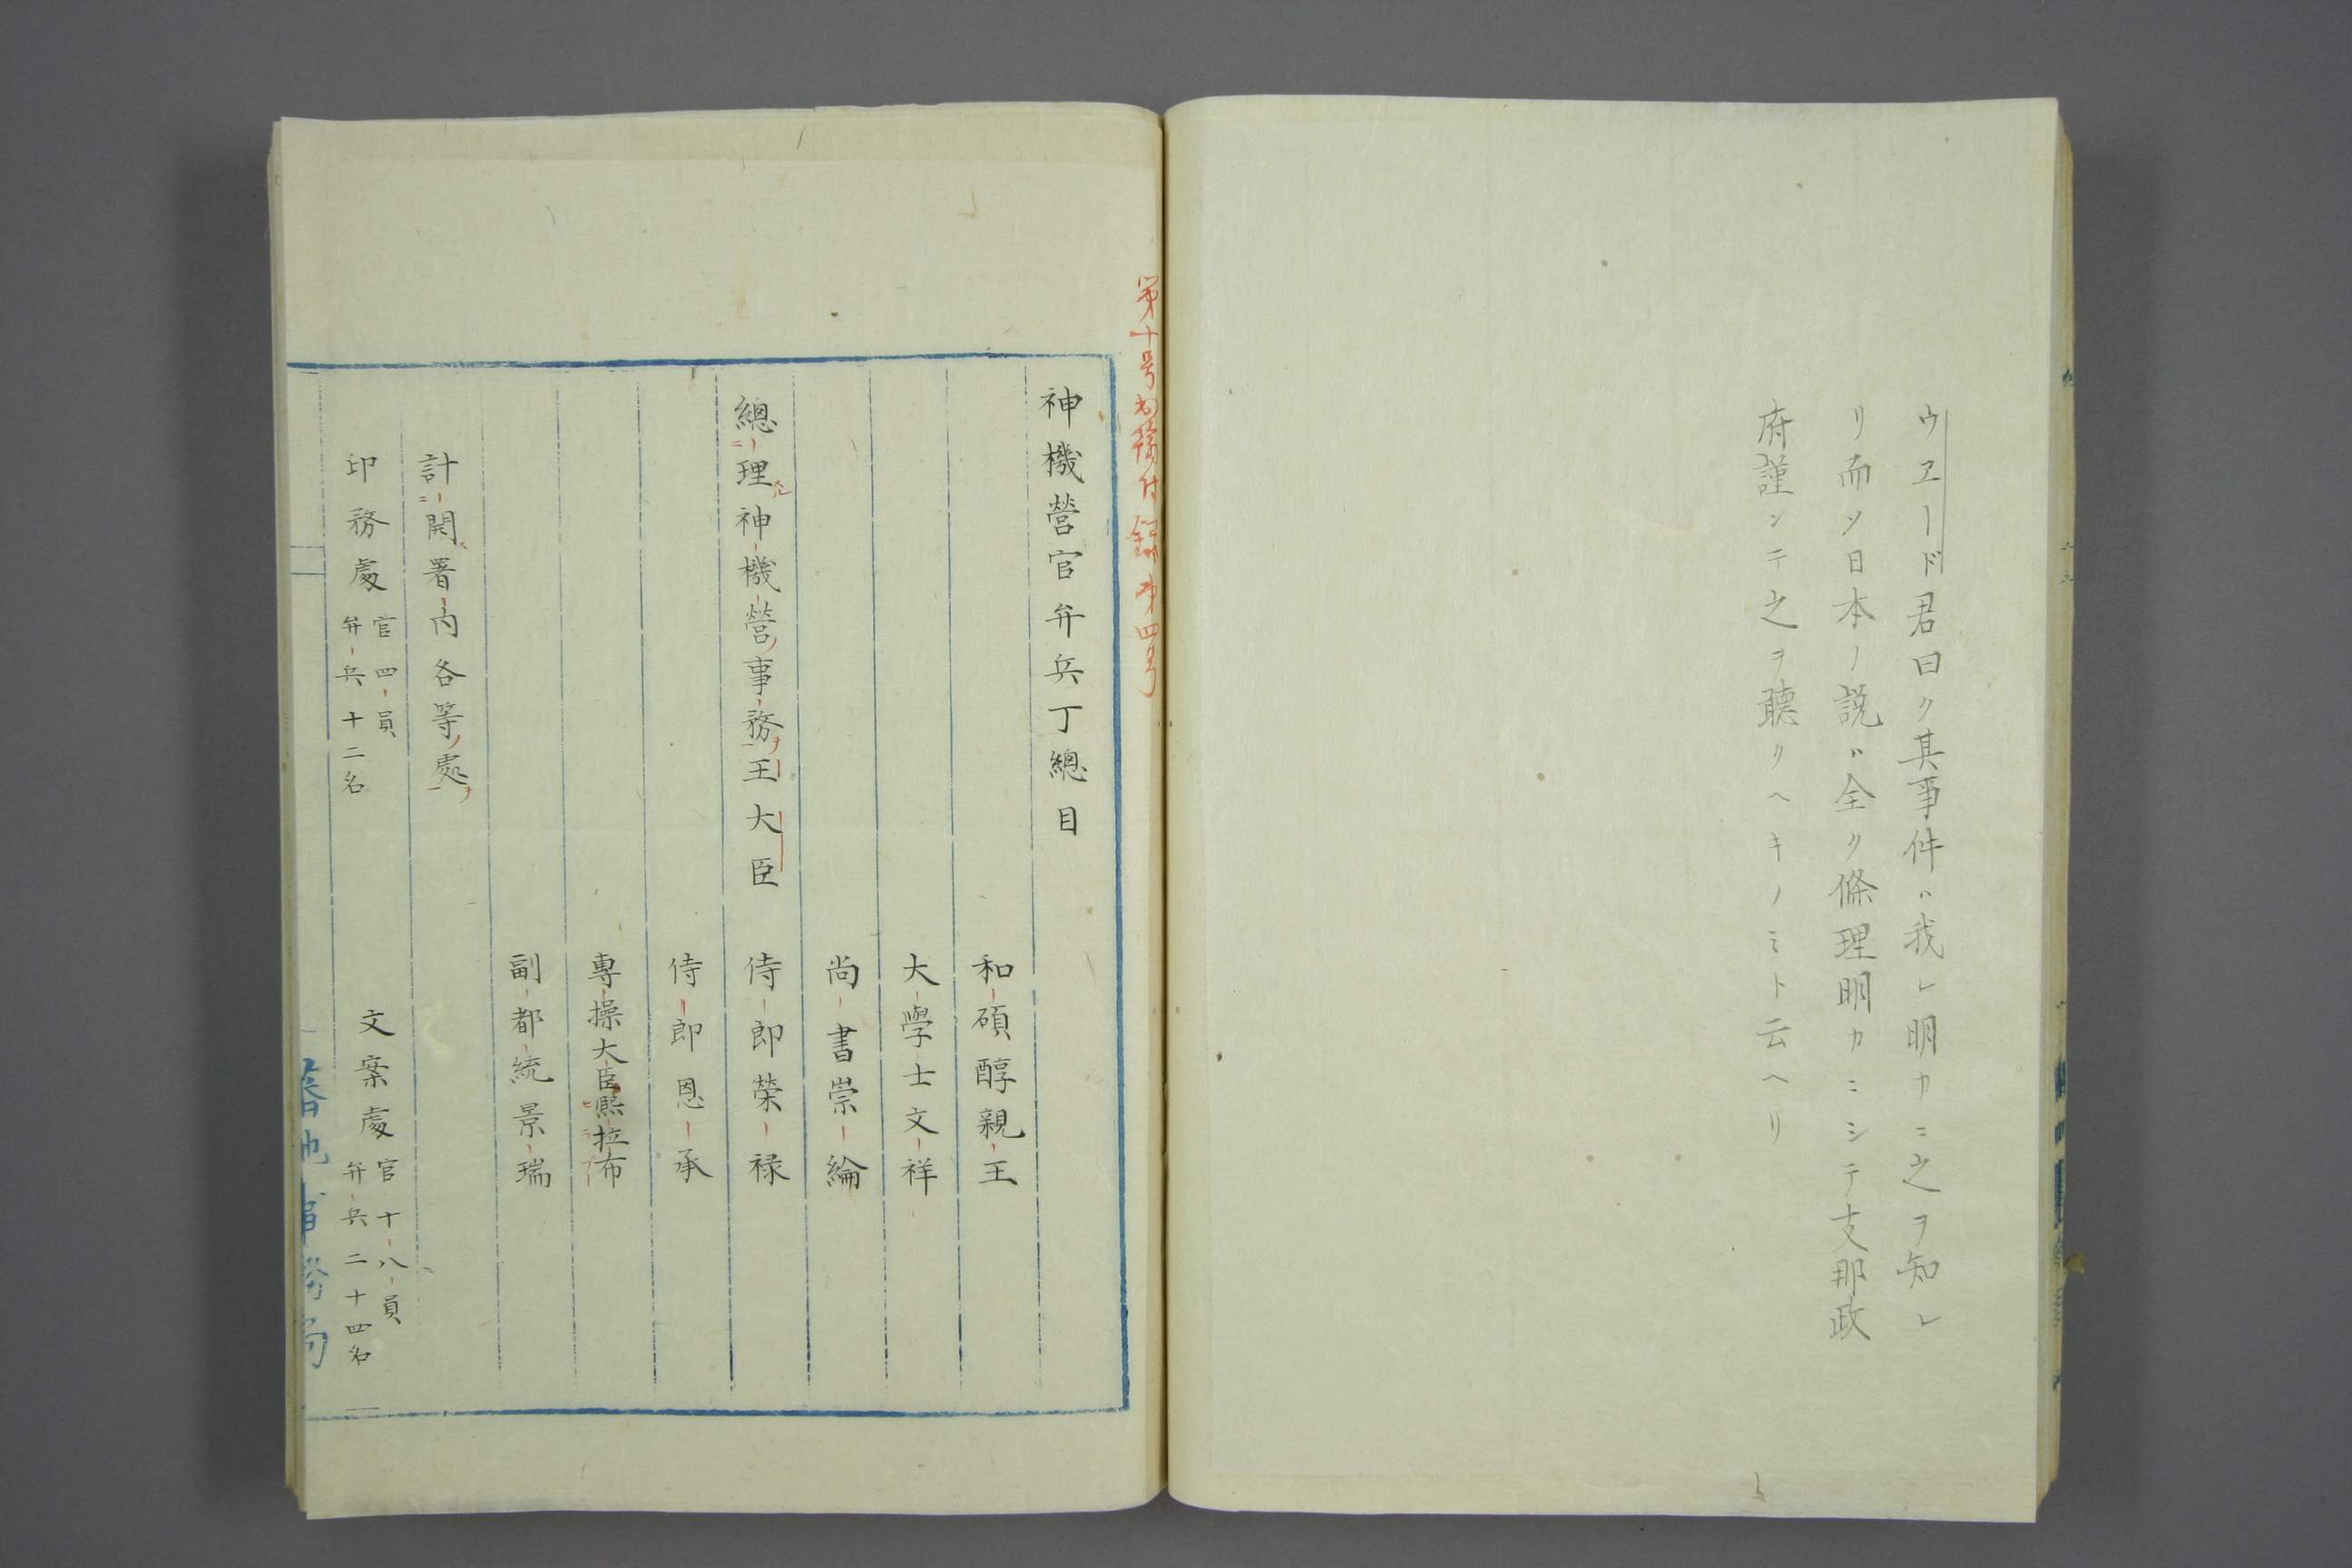 ウエード君曰ク其事件ハ我レ明カニ之ヲ知レ
リ而ソ日本ノ説ハ全ク條理明カニシテ支那政
府謹ンテ之ヲ聽クヘキノミト云ヘリ
第十号 付錄第四号
神機營官弁兵丁總目
和碩醇親王
大學士文祥
尚書崇綸
總理神機營事務王大臣 侍郎榮祿
侍郎恩承
專操大臣熙拉布
副都統景瑞
計開署内各等處
印務處 官四員 弁兵十二名 文案處 官十八員 弁兵二十四名
蕃地事務局